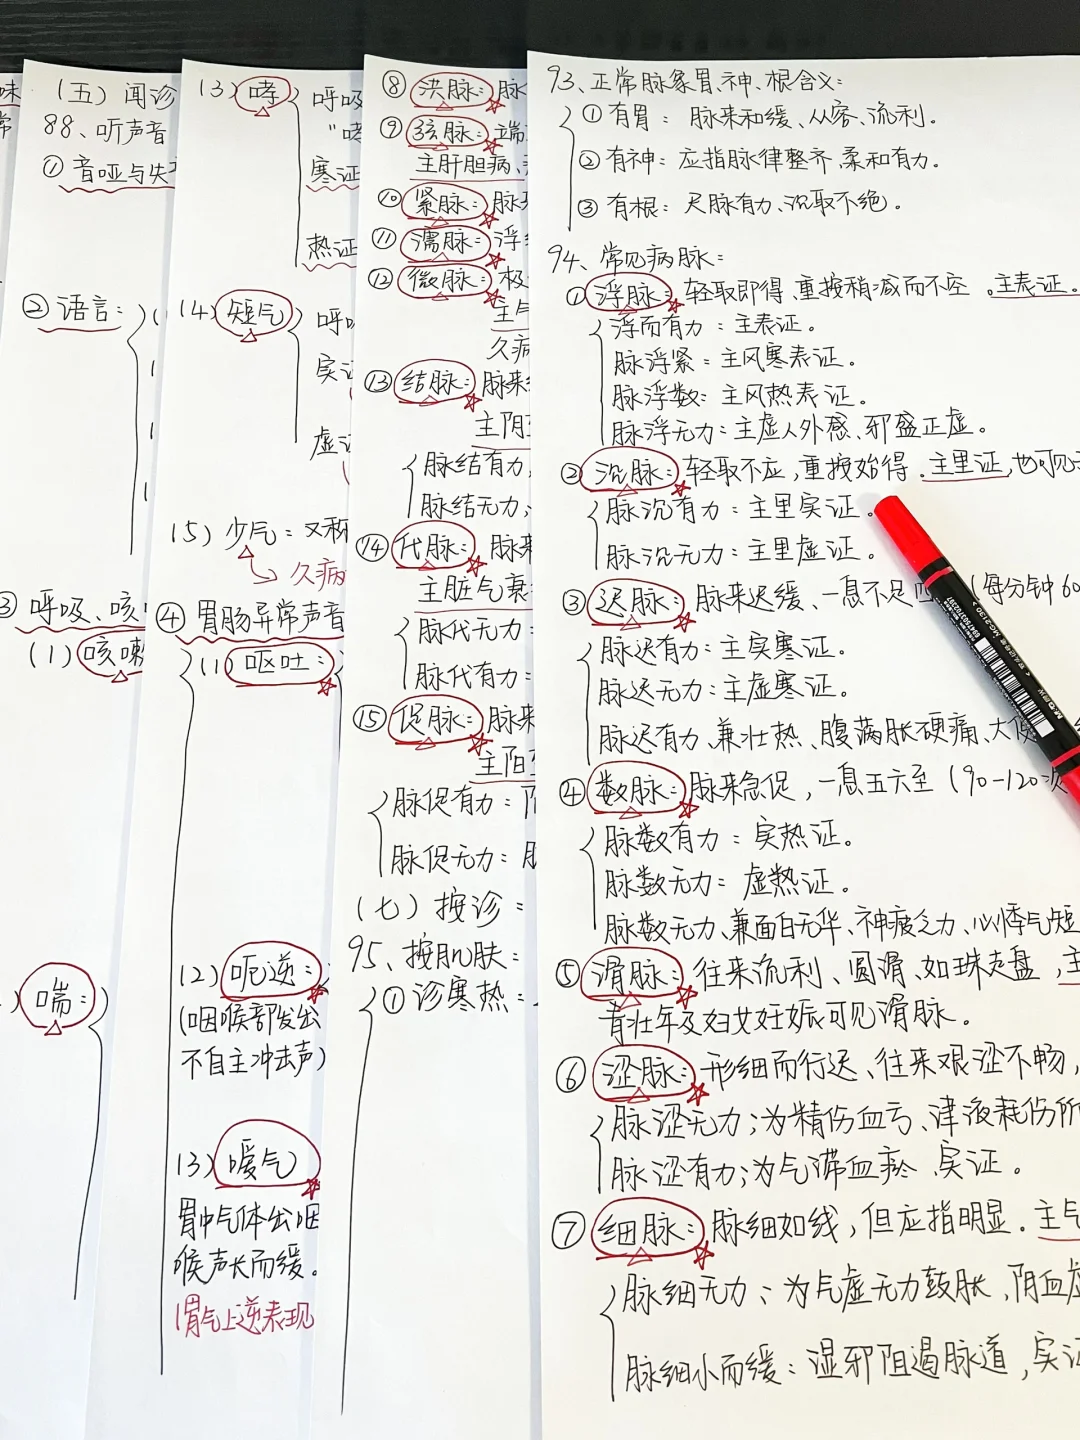 味
常
(五)闻诊
88、听声音
①音哑与失
②语言:
③呼吸、咳
(1)咳嗽
喘:
(3)哮
呼吸
"哮
寒证
热证
(4)短气
呼
实证
虚证
(5)少气:又称
久病
④胃肠异常声音
(1)呕吐:
(2)呃逆:
(咽喉部发出
不自主冲击声)
(3)嗳气
胃中气体出咽
喉声长而缓。
(胃气上逆表现
⑧洪脉:脉
⑨弦脉:端
主肝胆病、
⑩紧脉:脉
⑪濡脉:浮
⑫微脉:极
主气
久病
⑬结脉:脉来
主阴
脉结有力:
脉结无力:
⑭代脉:脉来
主脏气衰
脉代无力:
脉代有力:
⑮促脉:脉来
主阳
脉促有力:阳
脉促无力:
(七)按诊:
95、按肌肤:
①诊寒热:
93、正常脉象胃、神、根含义:
①有胃:脉来和缓、从容、流利.
②有神:应指脉律整齐、柔和有力.
③有根:尺脉有力、沉取不绝。
94、常见病脉:
①浮脉:轻取即得、重按稍减而不空。主表证。
浮而有力:主表证。
脉浮紧:主风寒表证。
脉浮数:主风热表证。
脉浮无力:主虚人外感、邪盛正虚。
②沉脉:轻取不应,重按始得.主里证,也可见
脉沉有力:主里实证。
脉沉无力:主里虚证。
③迟脉:脉来迟缓、一息不足四(每分钟60
脉迟有力:主实寒证.
脉迟无力:主虚寒证.
脉迟有力、兼壮热、腹满胀硬痛、大便
④数脉:脉来急促,一息五六至(90-120次
脉数有力:实热证.
脉数无力:虚热证.
脉数无力、兼面白无华、神疲乏力、心悸气短
⑤滑脉:往来流利、圆滑、如珠走盘,主
青壮年及妇女妊娠可见滑脉。
⑥涩脉:形细而行迟、往来艰涩不畅,
脉涩无力;为精伤血亏、津液耗伤所
脉涩有力;为气滞血瘀、实证。
⑦细脉:脉细如线,但应指明显.主气
脉细无力:为气虚无力鼓胀,阴血虚
脉细小而缓:湿邪阻遏脉道,实证
MG-2130
6947503702207
M&G 晨光